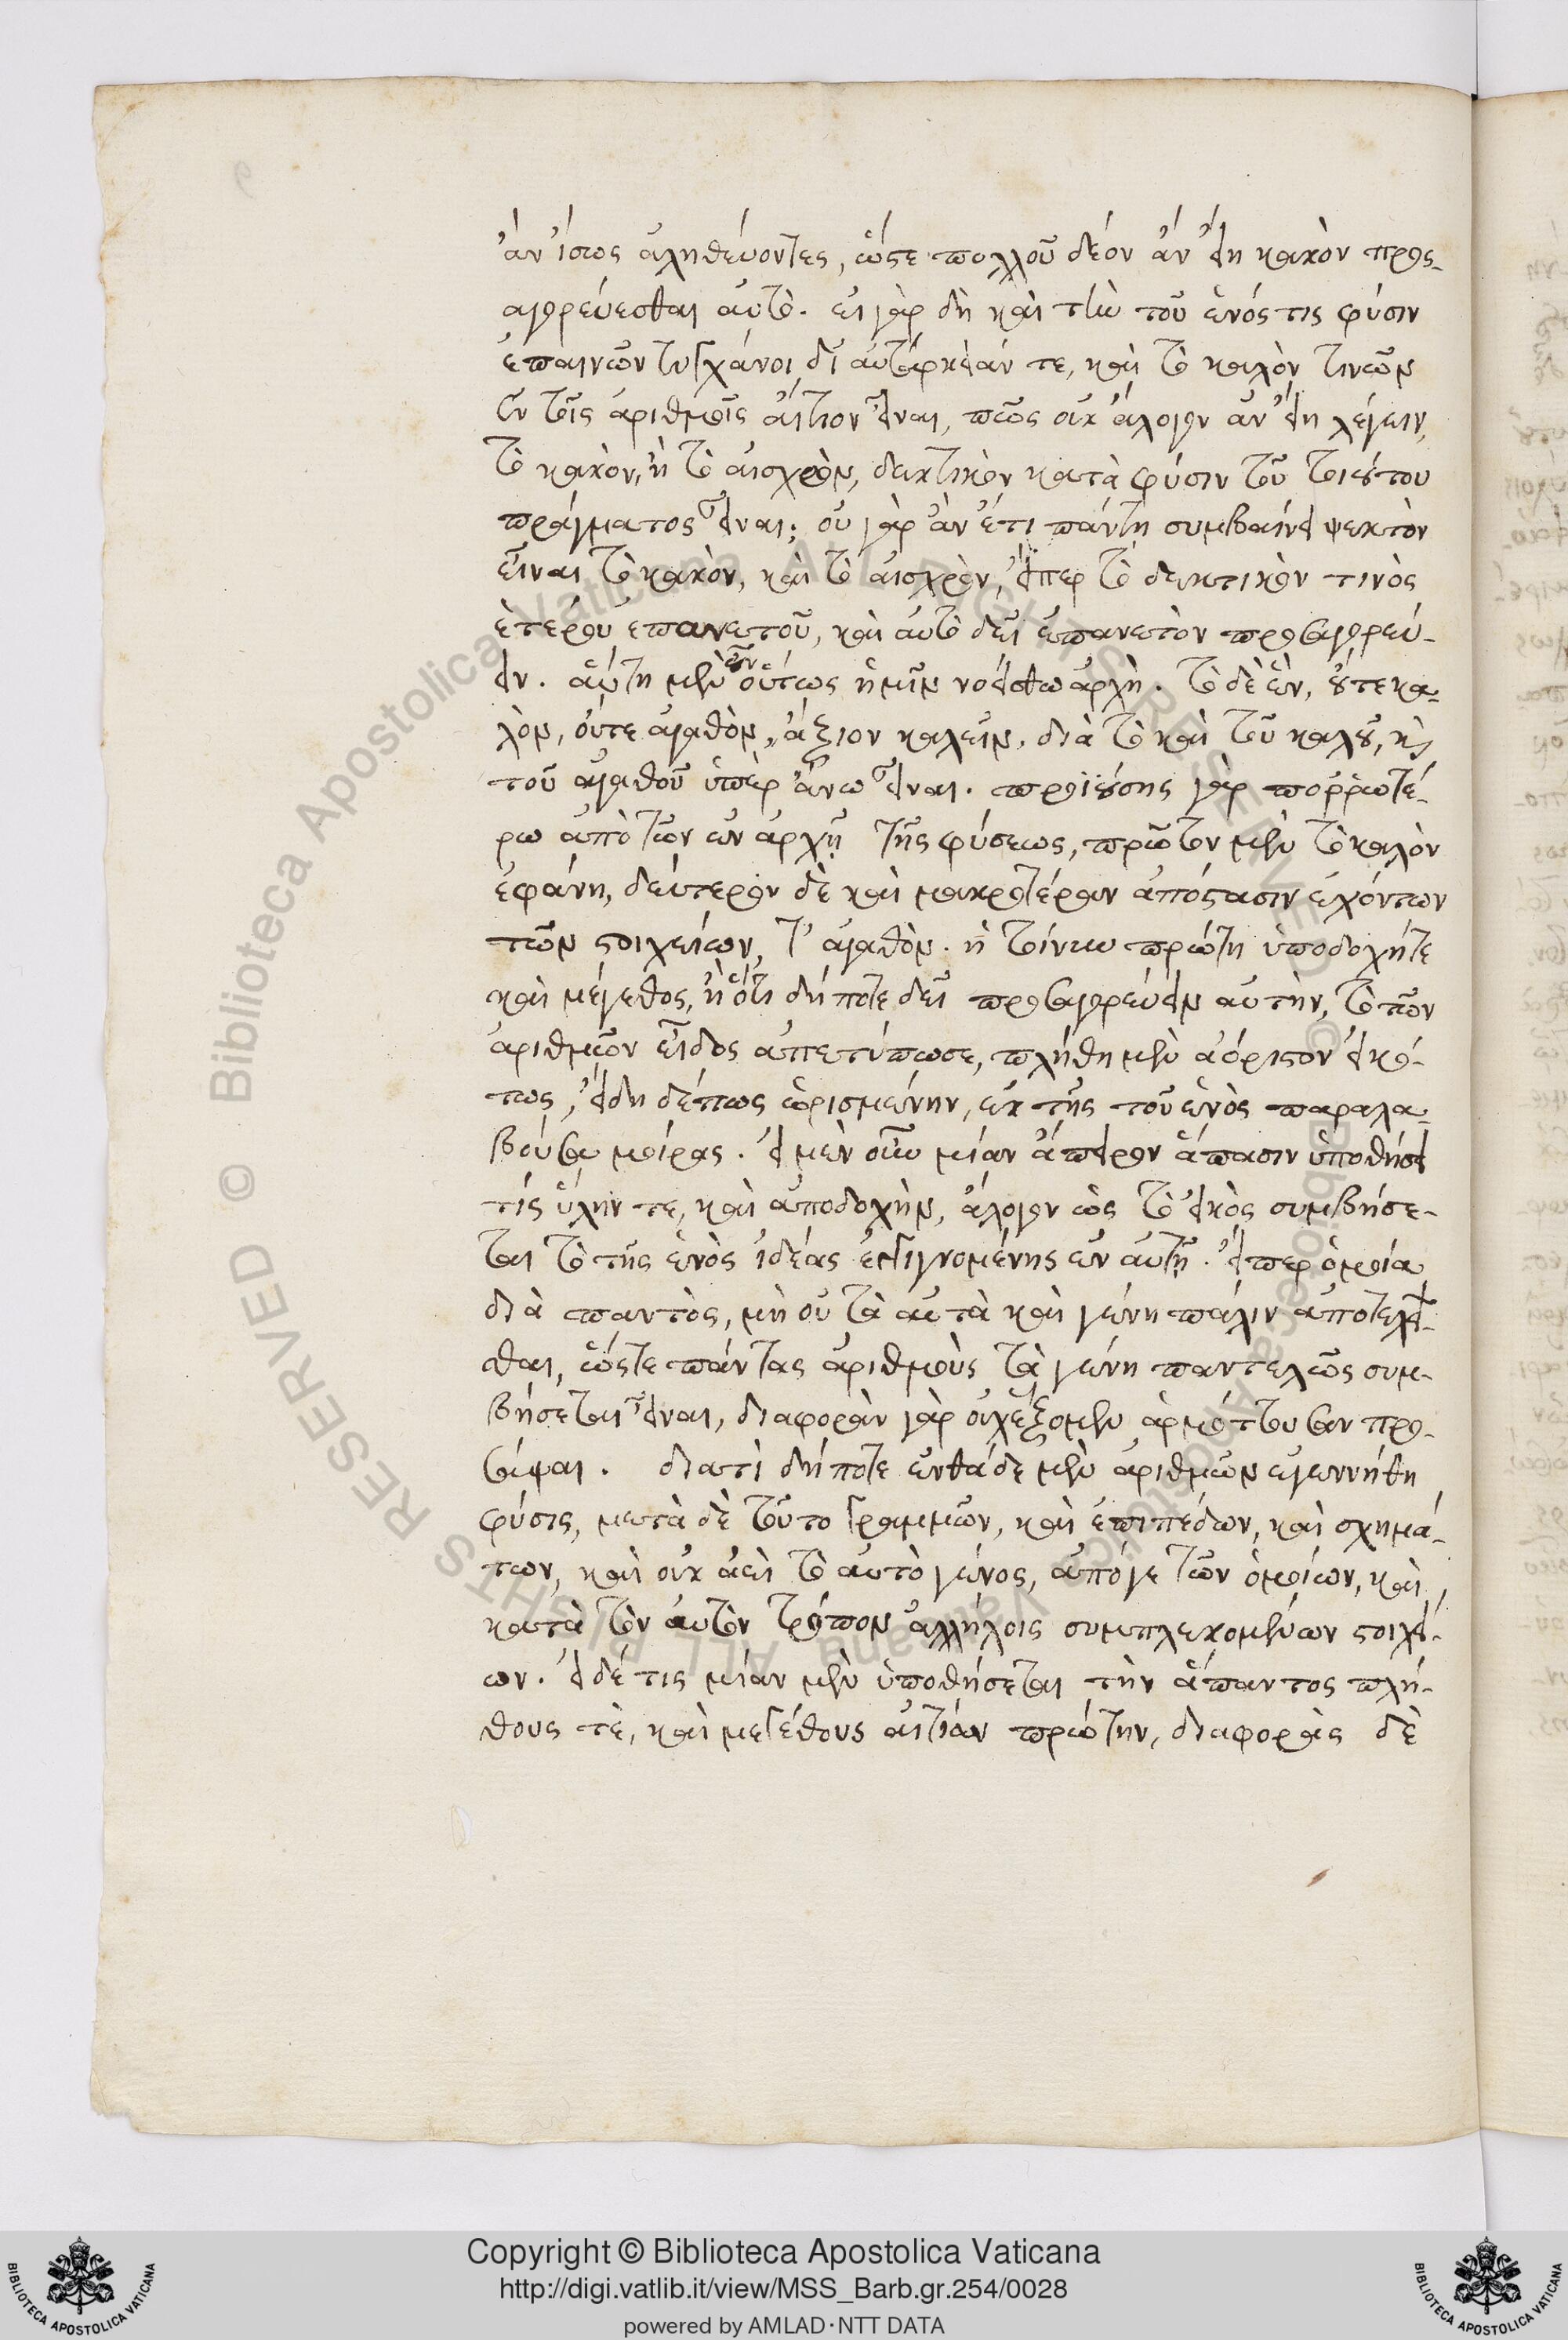 ἂν ἴσως ἀληθεύοντες, ὥστε πολλοῦ δέον ἂν εἴη κακὸν προς-
αγορεύεσθαι αὐτό. εἰ γὰρ δὴ καὶ τὴν τοῦ ἑνός τις φύσιν
ἐπαινῶν τυγχάνοι δι' αὐτάρκειάν τε, καὶ τὸ καλὸν τινῶν
ἐν τοῖς ἀριθμοῖς αἴτιον εἶναι, πῶς οὐκ ἄλογον ἂν εἴη λέγειν,
τὸ κακὸν, ἢ τὸ αἰσχρὸν, δεκτικὸν κατὰ φύσιν τοῦ τοιούτου
πράγματος εἶναι; οὐ γὰρ ἂν ἔτι πάντῃ συμβαίνει ψεκτὸν
εἶναι τὸ κακὸν, καὶ τὸ αἰσχρὸν, εἴπερ τὸ δεκτικὸν τινὸς
ἑτέρου ἐπαινετοῦ, καὶ αὐτὸ δεῖ ἐπαινετὸν προσαγορεύ-
ειν. αὕτη μὲν οὖν οὕτως ἡμῖν νοείσθω ἀρχὴ. τὸ δὲ ἓν, οὔτε κα-
λὸν, οὔτε ἀγαθὸν, ἄξιον καλεῖν, διὰ τὸ καὶ τοῦ καλοῦ, καὶ
τοῦ ἀγαθοῦ ὑπὲρ ἄνω εἶναι. προϊούσης γὰρ ποῤῥωτέ-
ρω ἀπὸ τῶν ἐν ἀρχῇ τῆς φύσεως, πρῶτον μὲν τὸ καλὸν
ἐφάνη, δεύτερον δὲ καὶ μακροτέραν ἀπόστασιν ἐχόντων
τῶν στοιχείων, τ' ἀγαθὸν. ἡ τοίνυν πρώτη ὑποδοχήτε
καὶ μέγεθος, ἢ ὅτι δήποτε δεῖ προσαγορεύειν αὐτὴν, τὸ τῶν
ἀριθμῶν εἶδος ἀπετύπωσε, πλήθη μὲν ἀόριστον εἰκό-
τως, εἴδη δέπως ὡρισμένην, ἐκ τῆς τοῦ ἑνὸς παραλα-
βοῦσα μοίρας. εἰ μὲν οὖν μίαν ἄπειρον ἅπασιν ὑποθήσει
τίς ὕλην τε, καὶ ἀποδοχὴν, ἄλογον ὡς τὸ εἰκὸς συμβήσε-
ται τὸ τῆς ἑνὸς ἰδέας ἐγγιγνομένης ἐν αὐτῇ. εἴπερ ὁμοία
διὰ παντὸς, μὴ οὐ τὰ αὐτὰ καὶ γένη πάλιν ἀποτελεῖ-
σθαι, ὥστε πάντας ἀριθμοὺς τὰ γένη παντελῶς συμ-
βήσεται εἶναι, διαφορὰν γὰρ οὐχ ἕξομεν ἁρμόττουσαν προ-
σάψαι. διατὶ δήποτε ἐνθάδε μὲν ἀριθμῶν ἐγεννήθη
φύσις, μετὰ δὲ τοῦτο γραμμῶν, καὶ ἐπιπέδων, καὶ σχημά-
των, καὶ οὐκ ἀεὶ τὸ αὐτὸ γένος, ἀπόγε τῶν ὁμοίων, καὶ
κατὰ τὸν αὐτὸν τρόπον ἀλλήλοις συμπλεκομένων στοιχεί-
ων. εἰ δέ τις μίαν μὲν ὑποθήσεται τὴν ἅπαντος πλή-
θους τὲ, καὶ μεγέθους αἰτίαν πρώτην, διαφορὰς δὲ
Copyright © Biblioteca Apostolica Vaticana
http://digi.vatlib.it/view/MSS_Barb.gr.254/0028
powered by AMLAD·NTT DATA